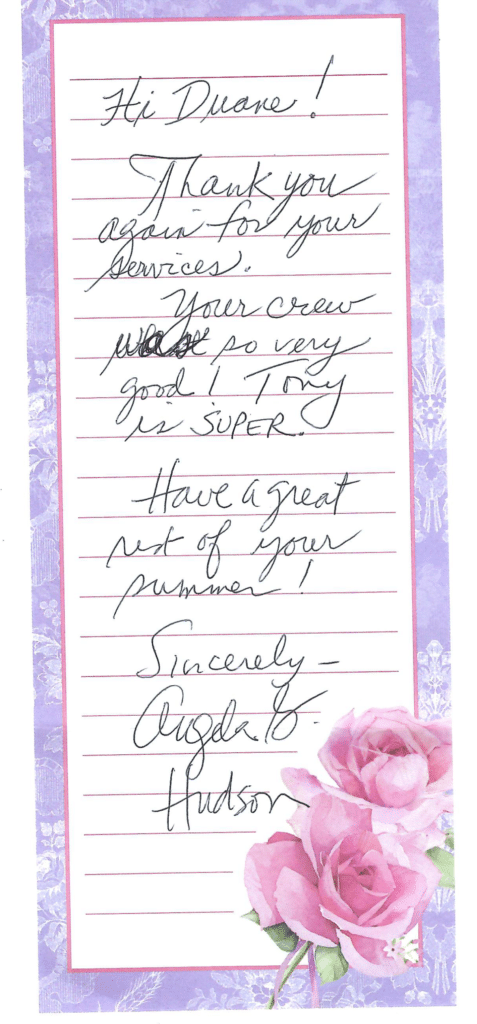 Hi Duane!
Thank you
again for your
services.
Your crew
was so very
good! Tony
is SUPER.
Have a great
rest of your
summer!
Sincerely –
Angela
Hudson